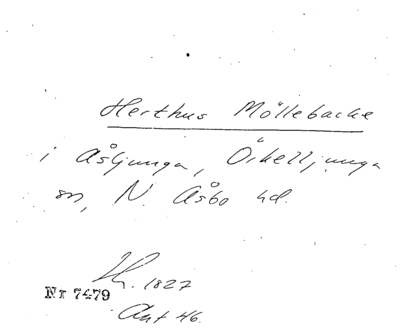 Herthus Möllebacke
i Åsljunga, Örkelljunga
sn, N. Åsbo hd.
1827
Nr 7479
Ant 46.